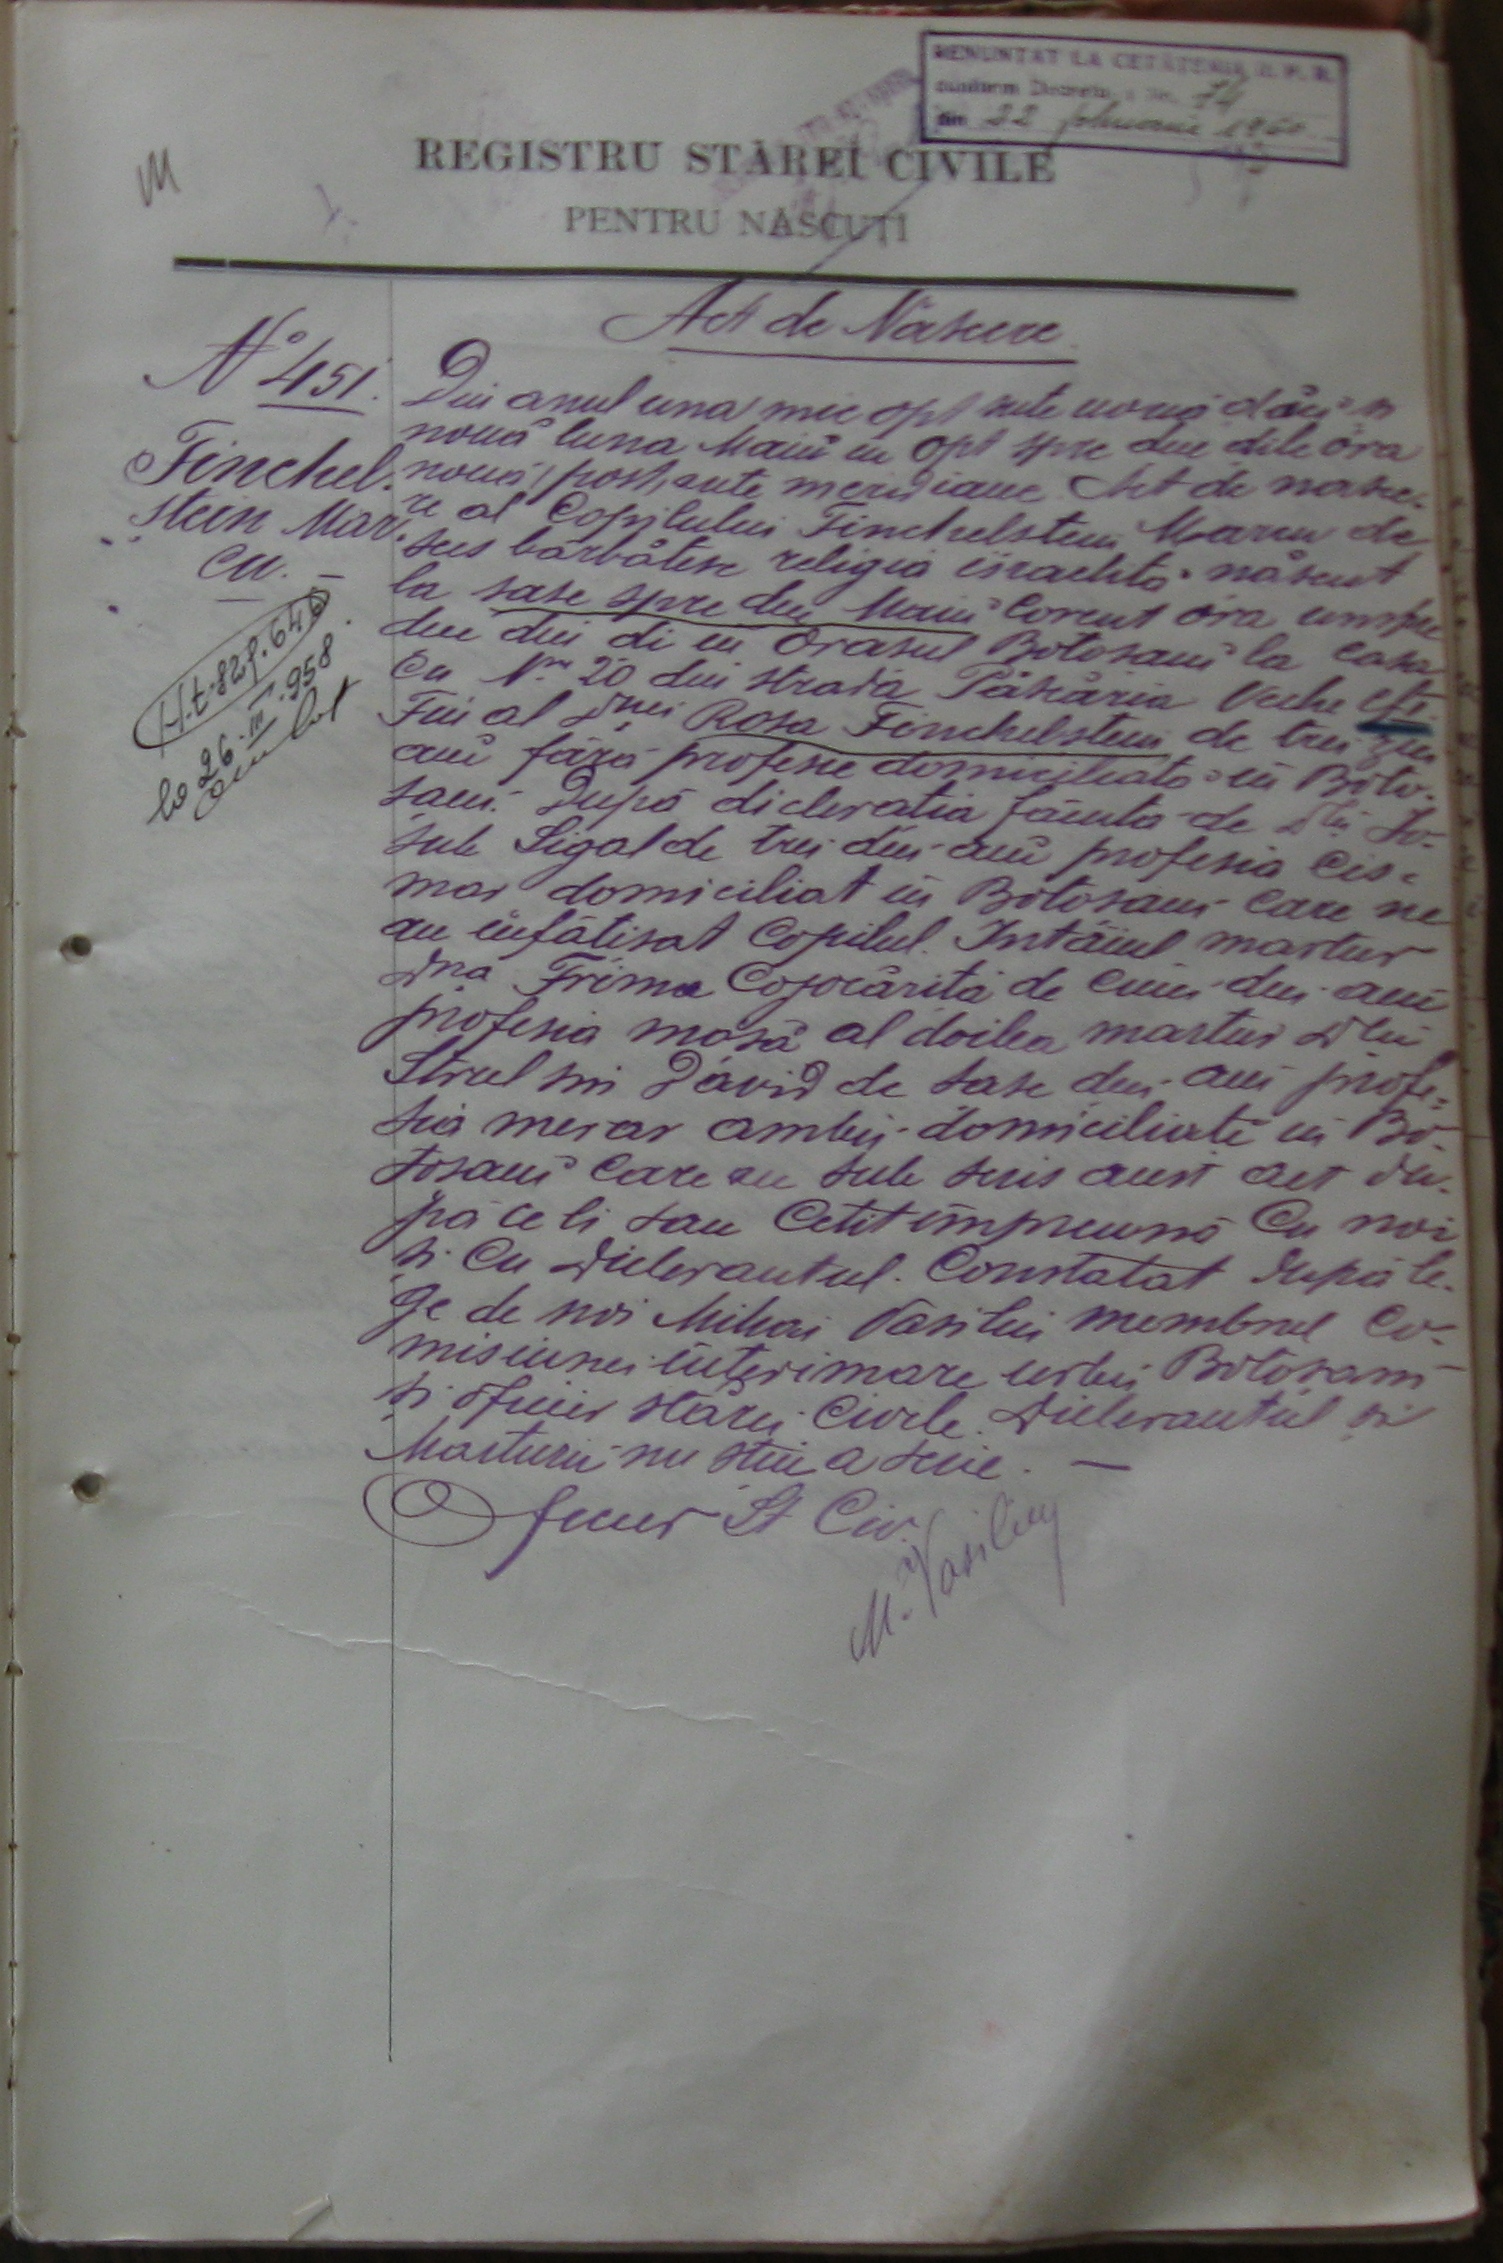 RENUNTAT LA CETĂȚENIA R. P. R.
conform Decretului Nr. 74
din 22 februarie 1960
M
REGISTRU STĂREI CIVILE
PENTRU NĂSCUȚI
Act de Nascere
No 451.
Finchel-
stein Mar-
cu. —
H.t.827.f.646
la 26.III.958.
Din anul una mie opt sute nouă deci si
nouă luna Maiŭ in opt spre dece dile óra
nouă post ante meridiane. Act de nasce-
re al Copilului Finchelstein Marcu de
secs bărbătesc religia israelita născut
la sase spre dece Maiŭ Corent óra unspre
dece din di in Orasul Botosani la casa
cu No 20 din strada Păscăria Veche
Fiu al Dnei Rosa Finchelstein de trei deci
ani fără profesie domiciliata in Boto-
sani. După declaratia făcuta de Dlu Io-
sub Sigal de trei deci ani profesia Cis-
mar domiciliat in Botosani care ne
au infătisat Copilul. Intâiul martur
Dna Frima Cojocărită de cinci deci ani
profesia mosă al doilea martur Dlu
Strul sin David de sase deci ani profe-
sia merar ambii domiciliati in Bo-
tosani care au sub scris acest act du-
pă ce li sau Cetit impreună Cu noi
si Cu declarantul. Constatat după le-
ge de noi Mihai Vasiliu membrul Co-
misiunei interimare urbei Botosani
si oficier stărei Civile. Declarantul si
Marturii nu stiu a scrie. —
Oficier St Civ.
M. Vasiliu